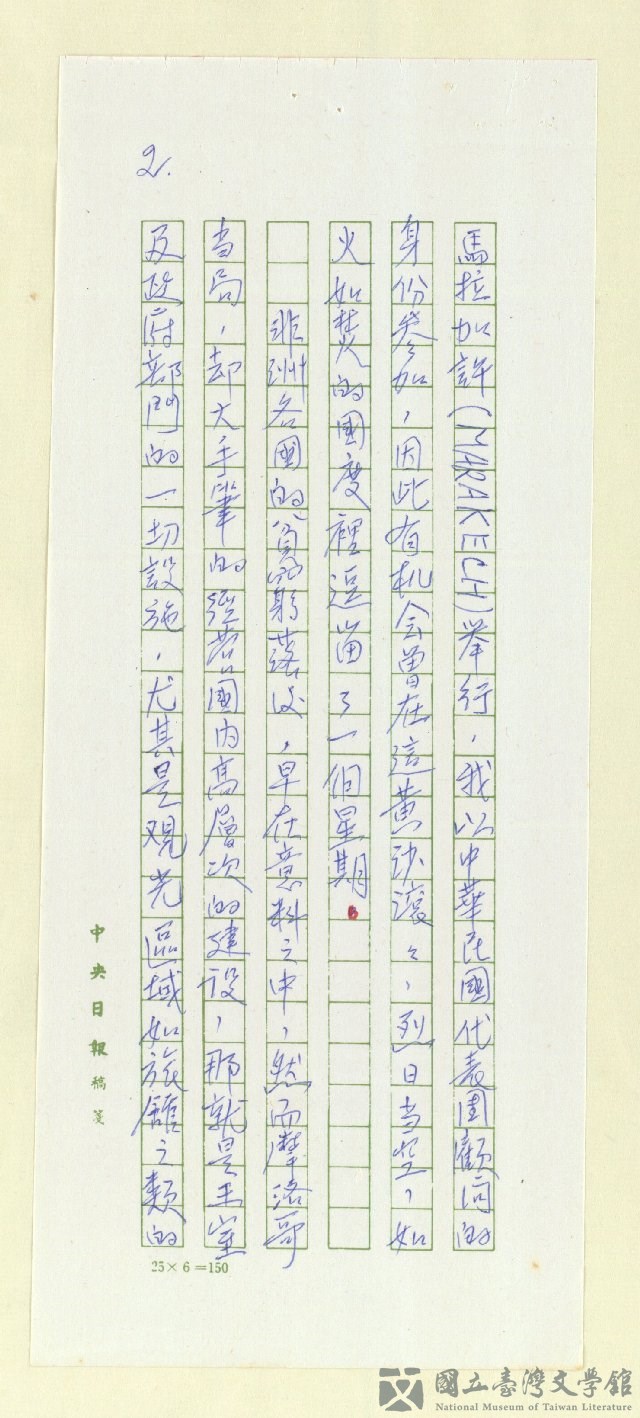 2.
馬拉加許(MARAKECH)举行，我以中華民國代表團顧问的
身份参加，因此有机会曾在這黄沙滾々，烈日当空，如
火如焚的國度裡逗畄了一個星期。
非洲各國的貧窮落后，早在意料之中，然而摩洛哥
当局，却大手筆的經营國内高層次的建設，那就是王室
及政府部門的一切設施，尤其是观光區域如旅舘之類的
中央日報稿箋
25×6=150
國立臺灣文學館
National Museum of Taiwan Literature